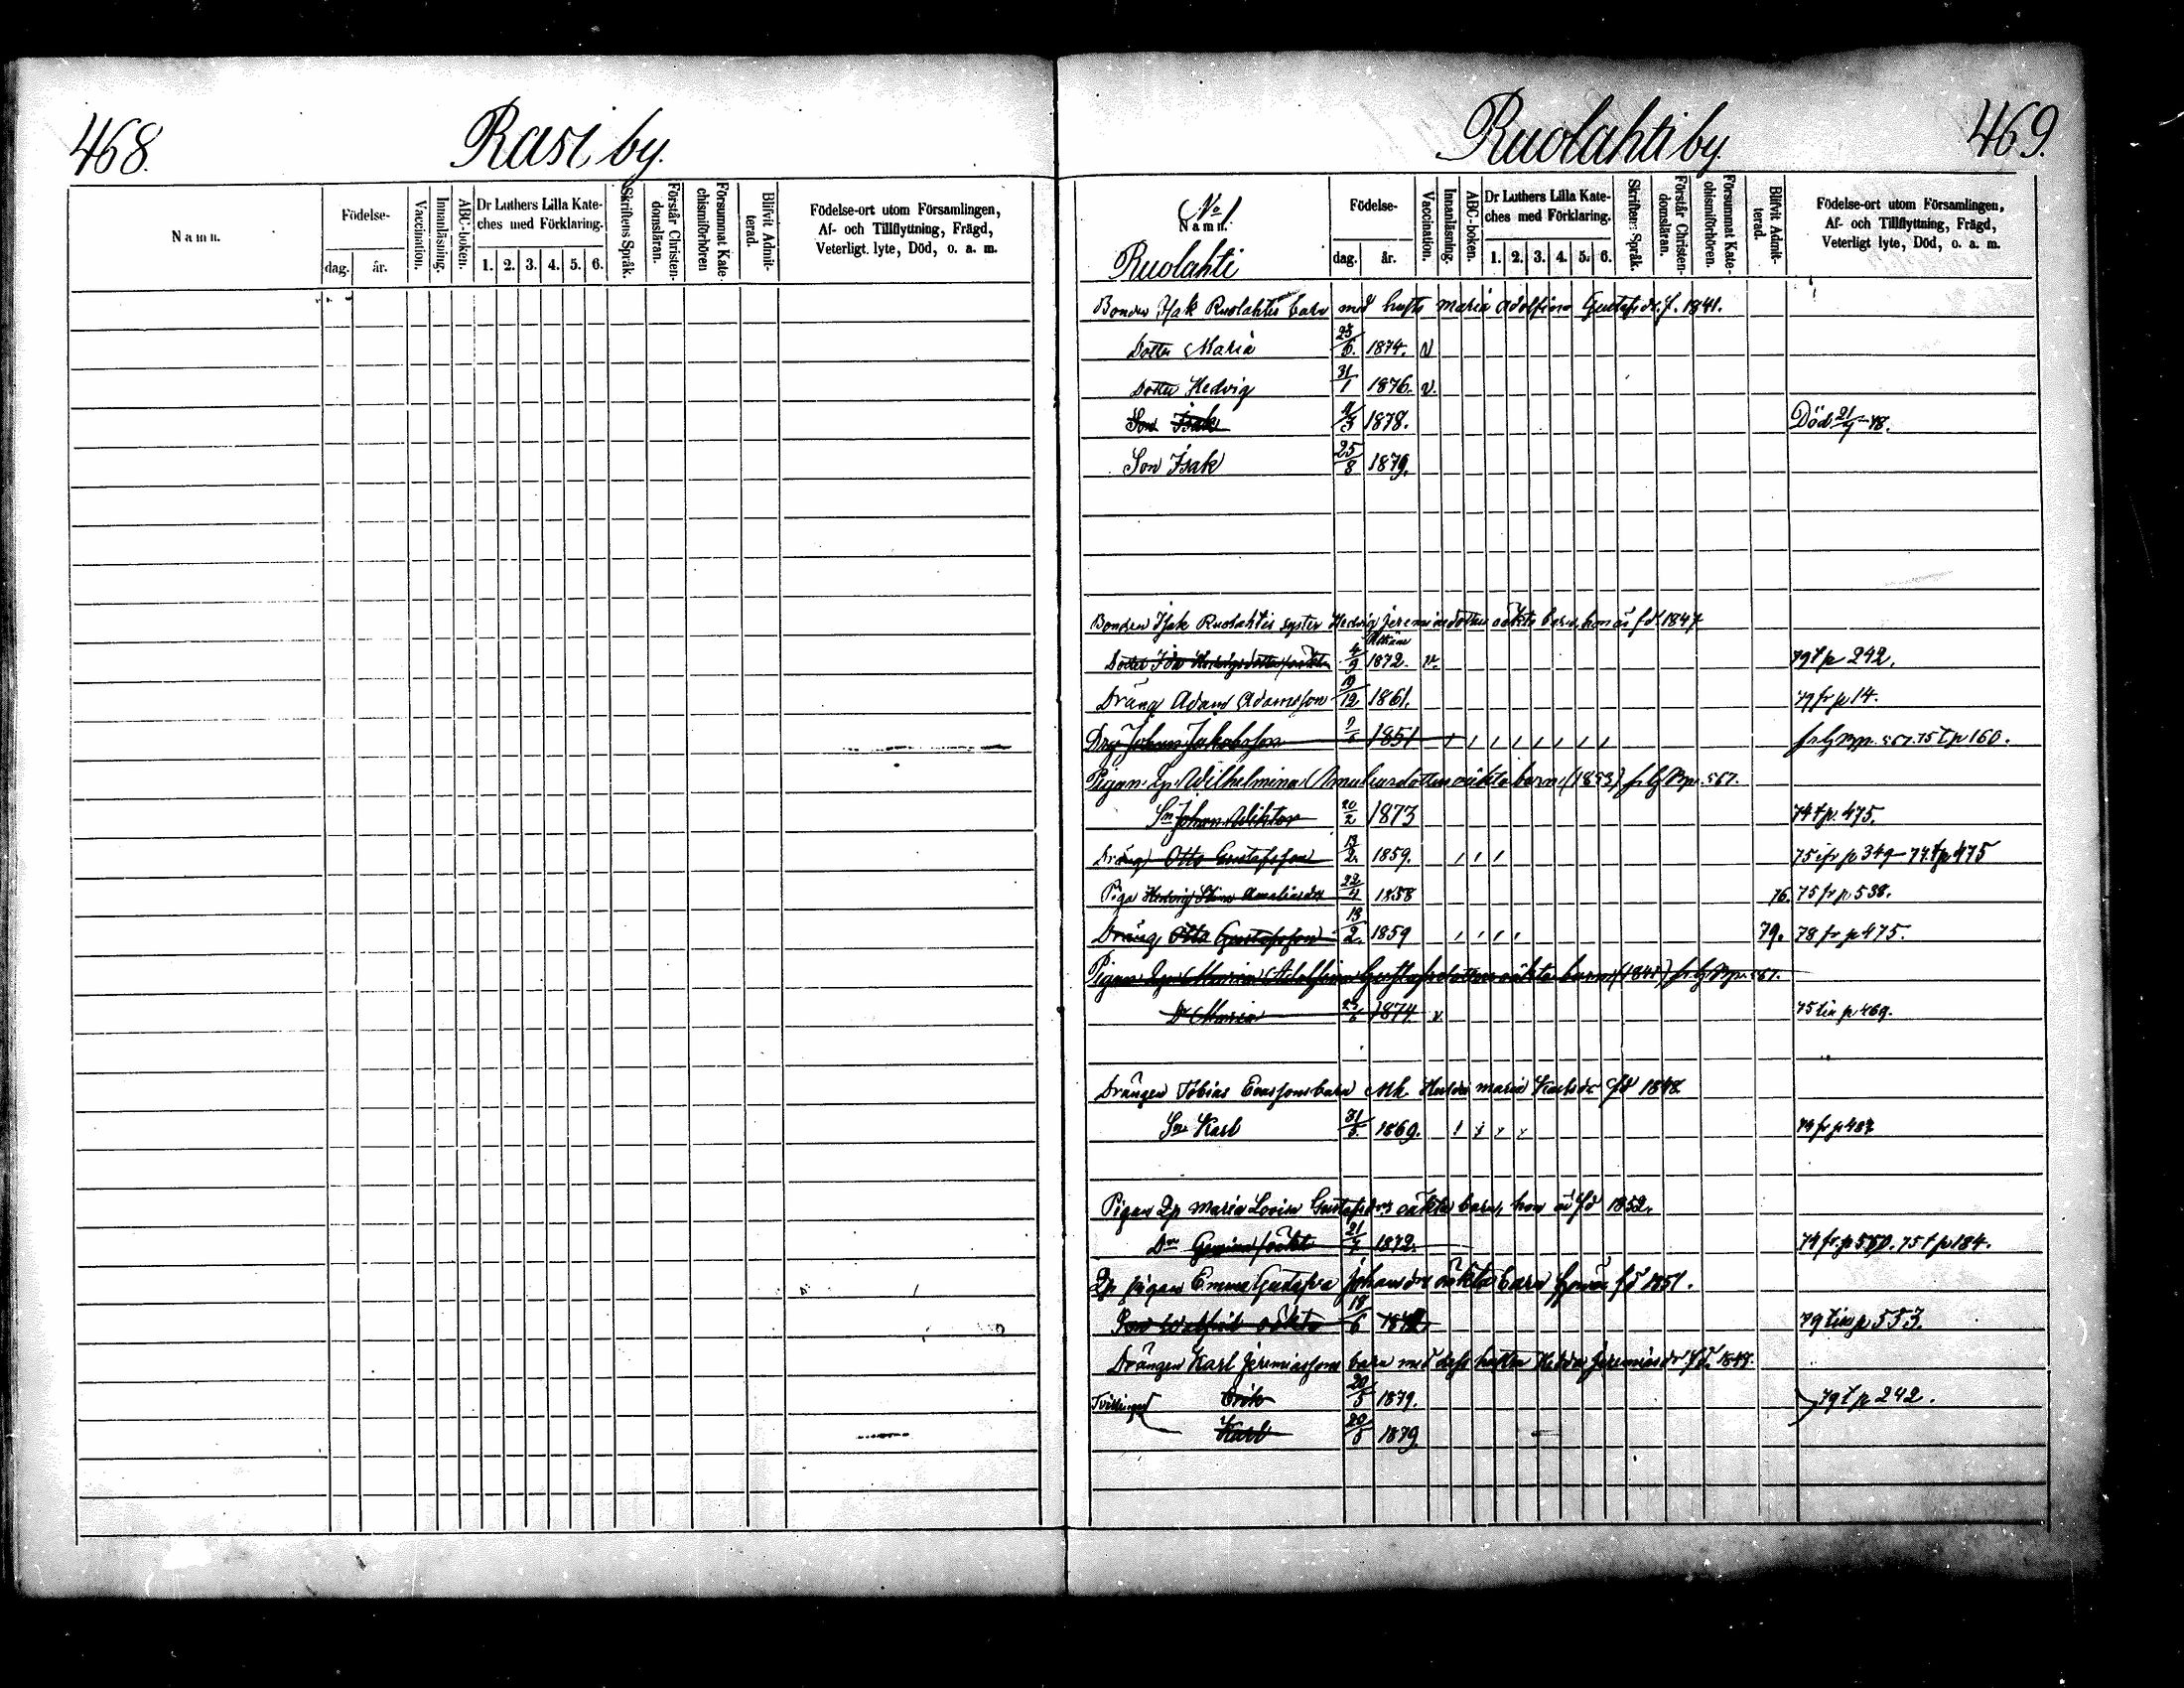 468.
Rasi by.
Namn.
Födelse-
dag.
år.
Vaccination.
Innanläsning.
ABC-boken.
Dr Luthers Lilla Kate-
ches med Förklaring.
1. 2. 3. 4. 5. 6.
Skriftens Språk.
Förstår Christen-
domsläran.
Försummat Kate-
chismiförhören
Blifvit Admit-
terad.
Födelse-ort utom Församlingen,
Af- och Tillflyttning, Frägd,
Veterligt lyte, Död, o. a. m.
Ruolahti by.
469.
No 1.
Namn.
Ruolahti
Födelse-
dag.
år.
Vaccination.
Innanläsning.
ABC-boken.
Dr Luthers Lilla Kate-
ches med Förklaring.
1. 2. 3. 4. 5. 6.
Skriftens Språk.
Förstår Christen-
domsläran.
Försummat Kate-
chismiförhören.
Blifvit Admit-
terad.
Födelse-ort utom Församlingen,
Af- och Tillflyttning, Frägd,
Veterligt lyte, Död, o. a. m.
Bonden Isak Ruolahtis barn med hustr Maria Adolfina Gustafsdr. f. 1841.
Dotter Maria 1874. v
Dotter Hedvig 31/1 1876. v.
Son Isak 1878. Död 78.
Son Isak 25/8 1879.
Bonden Isak Ruolahtis syster Hedvig Jeremiasdotters oäkta barn, hon är fd. 1847
Dotter Ida 4/9 1872. v. 79 t p 242.
Dräng Adam Adamsson 19/12 1861. 79 fr p 14.
Drg Johan Jakobsson 1851 / / / / / / / / 75 t p 160.
Pigan Lp. Wilhelmina oäkta barn, (1853)
Sn Johan Wiktor 20/2 1873 74 t p. 475.
Dräng Otto Gustafsson 13/2. 1859. / / / 75 ifr p 349 – 77. t p 475
Piga Hedvig Stina 1858 76. 75 fr p 538.
Dräng Otto Gustafsson 13/2. 1859 / / / / 79. 78 fr p 475.
Pigan Lp. Maria Adolfina Gustafsdotters oäkta barn (1841)
Dr Maria 1874 v 75 p 469.
Drängen Tobias barn Mh. Maria Karlsdr fd 1848
Sn Karl 31/5. 1869. / / / /
Pigan Lp Maria Lovisa Gustafsdrs oäkta barn, hon är fd 1852.
Dr oäkta 21/7 1872. 75 t p 184.
Lp pigan Emma Gustafva Johansdrs oäkta barn hon är fd 1851.
Son oäkta 18/6 79 p 553.
Drängen Karl Jeremiassons barn med dess hustru Hedda Jeremiasdr fd. 1848.
Tvillingar Erik 20/5 1879. 79 t p 242.
Karl 20/5 1879